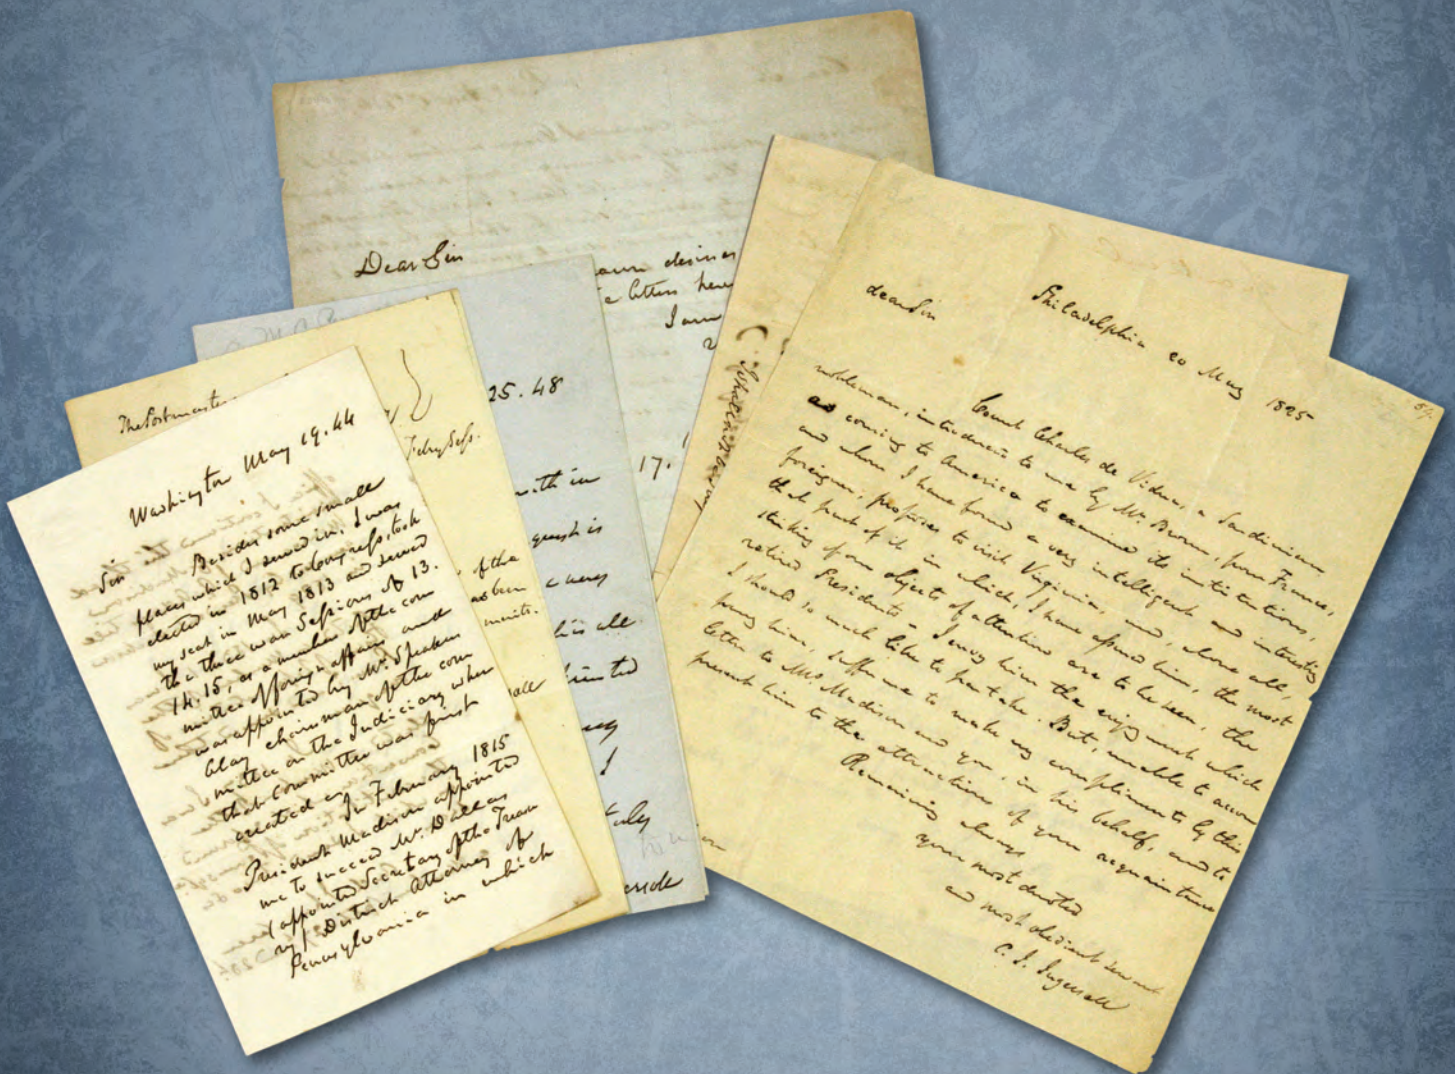 Washington May 19. 44
Sir
Besides some small
places which I served in, I was
elected in 1812 to Congress, took
my seat in May 1813 and served
the three war Sessions of 13.
14. 15, as a member of the com
mittee of foreign affairs and
was appointed by Mr. Speaker
Clay chairman of the com
mittee on the Judiciary when
that committee was first
created
In February 1815
President Madison appointed
me to succeed Mr. Dallas
(appointed Secretary of the Treasu
ry) District Attorney of
Pennsylvania in which
The Postmaster
25. 48
with in
is
a very
his all
I
truly
of the
as been
all
Dear Sir
desires
letters have
I am
17.
Philadelphia 20 May 1825
dear Sir
Count Charles de Vidua, a Sardinian
nobleman, introduced to me by Mr. Brown, from France,
as coming to America to examine its institutions,
and whom I have found a very intelligent and interesting
foreigner, proposes to visit Virginia, and, above all,
that part of it in which, I have apprised him, the most
striking objects of attention are to be seen, the
retired Presidents - I envy him the enjoyment which
I should so much like to partake. But, unable to accom
pany him, suffer me to make my compliments by this
letter to Mrs. Madison and you, in his behalf, and to
present him to the attractions of your acquaintance
Remaining always
your most devoted
and most obedient servant
C. J. Ingersoll